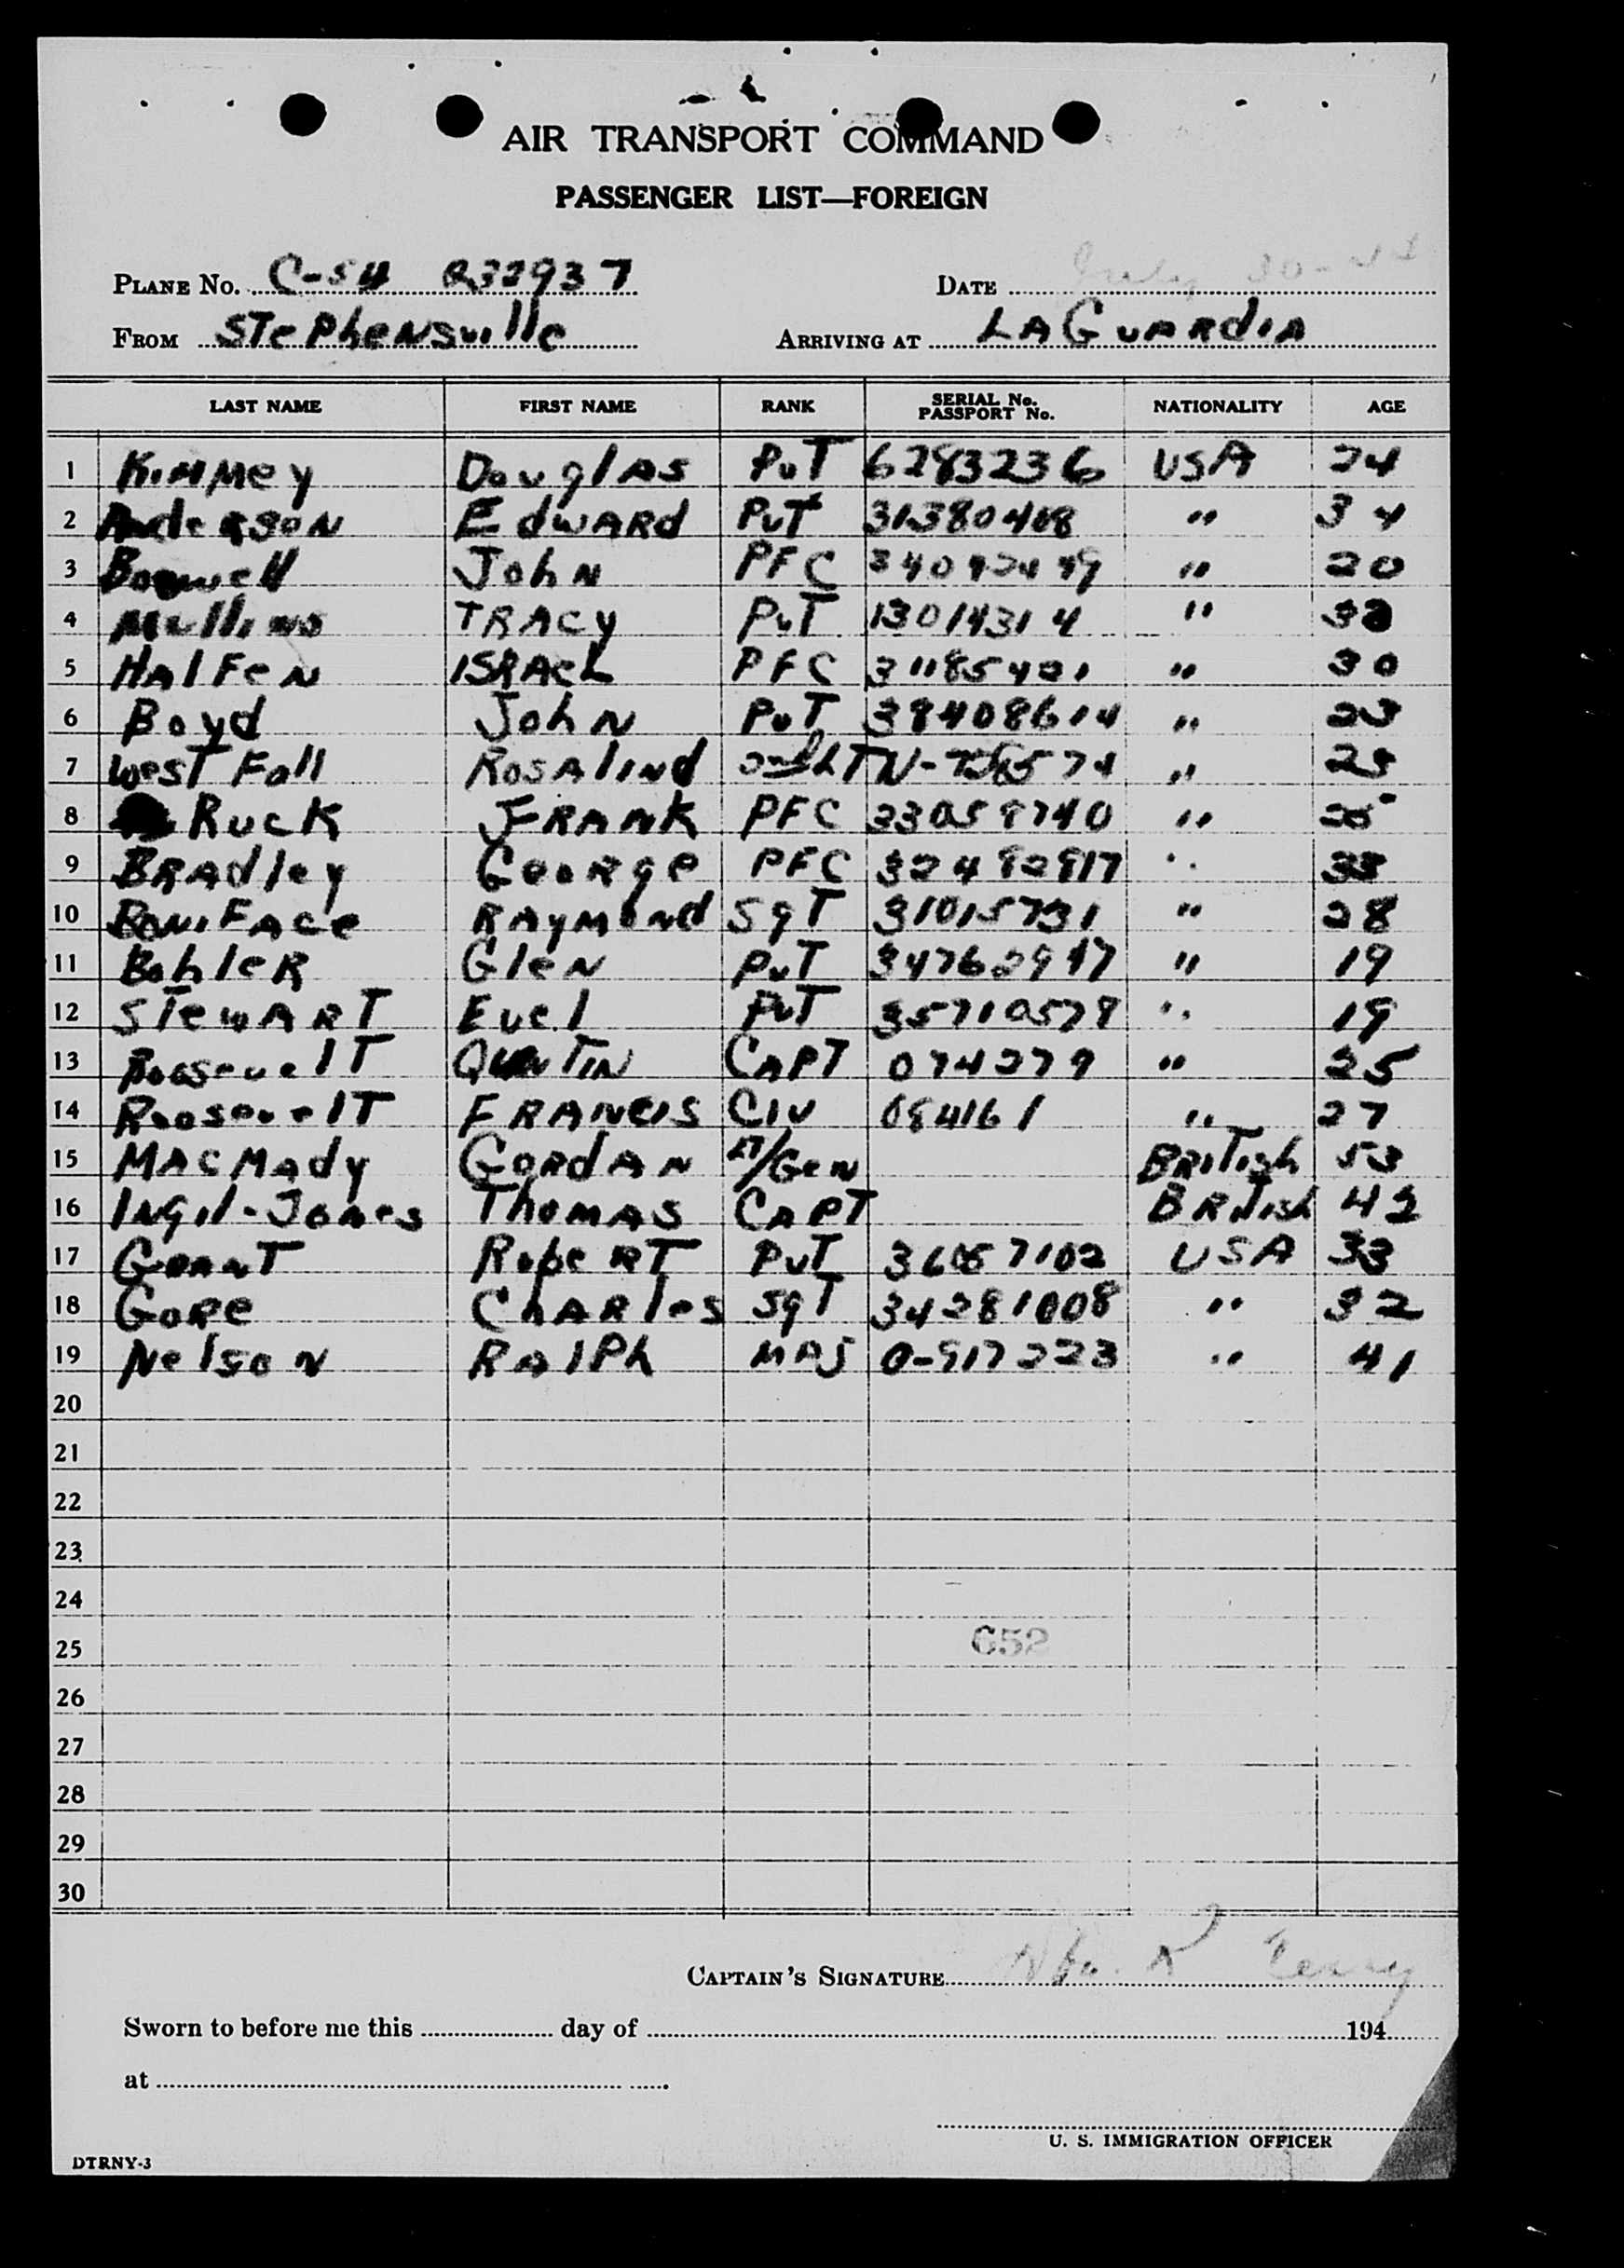 AIR TRANSPORT COMMAND
PASSENGER LIST—FOREIGN
PLANE NO. C-54 232937 DATE July 30-44
FROM STePhensville ARRIVING AT LAGUARdiA
LAST NAME FIRST NAME RANK SERIAL No. PASSPORT No. NATIONALITY AGE
1 Kimmey DouglAS PvT 6283236 USA 24
2 AndeRSON EdwARd PvT 31380468 " 34
3 Boswell JohN PFC " 20
4 Mullins TRACy PvT 13014314 "
5 HAlFeN ISRAeL PFC 31185421 " 30
6 Boyd JohN PvT 38408614 " 23
7 WesTFall RosAliNd 2nd LT "
8 RucK FRANK PFC "
9 BRAdley GeoRge PFC " 33
10 BoniFAce RAymoNd SgT 31015731 " 28
11 BohleR GleN PvT " 19
12 STewART Evel PvT 35710578 " 19
13 RooseveLT QueNTIN CAPT " 25
14 RooseveLT FRANCIS CIV 084161 " 27
15 MACMAdy GoRdAN LT/GeN BRiTish 53
16 INgil-JoNes ThomAS CAPT BRiTish 42
17 GRANT RobeRT PvT 36057102 USA 33
18 GoRe ChARles SgT 34281008 " 32
19 NelsoN RAlPh MAJ 0-917223 " 41
20
21
22
23
24
25 652
26
27
28
29
30
CAPTAIN'S SIGNATURE
Sworn to before me this day of 194
at
U. S. IMMIGRATION OFFICER
DTRNY-3